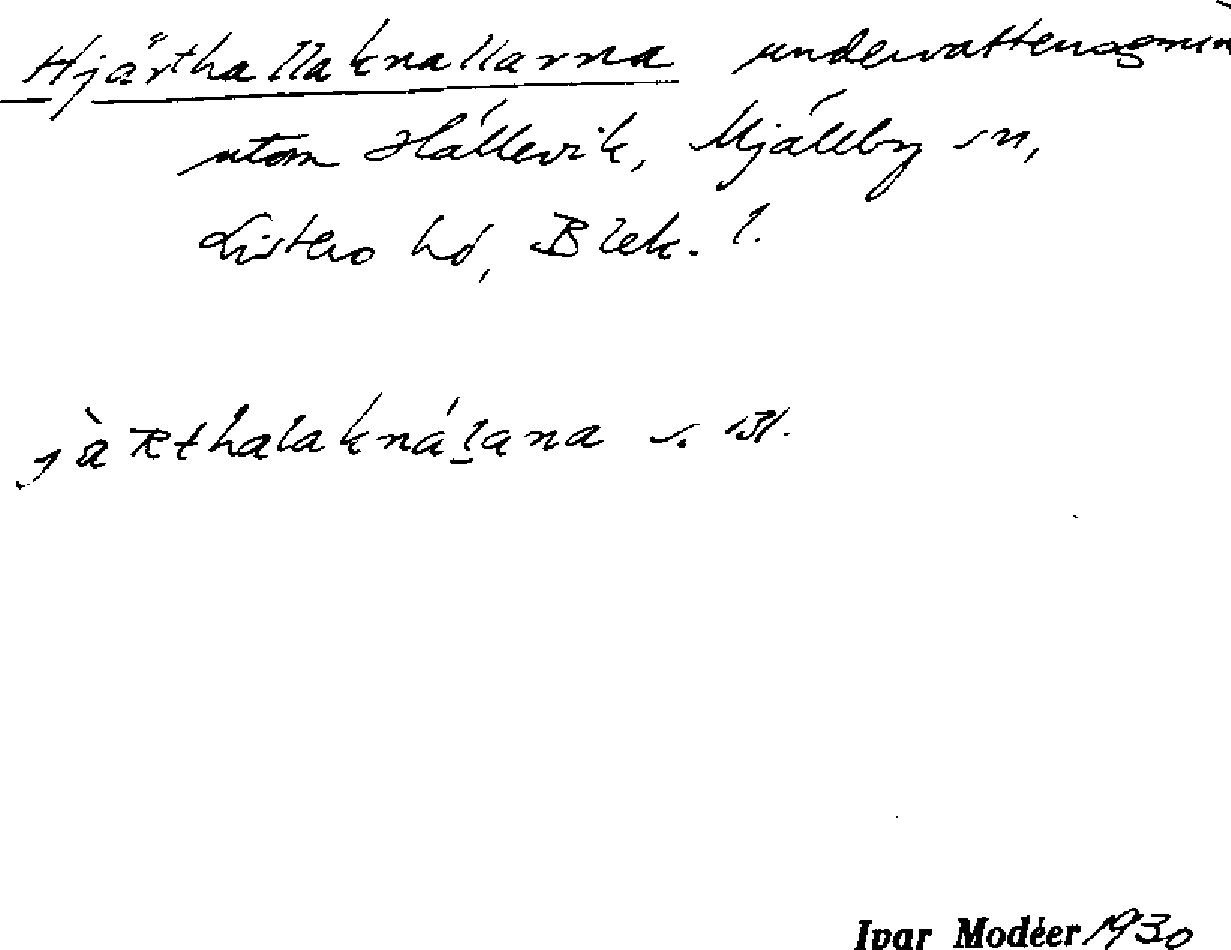 Hjärthallaknallarna undervattensgrun
utom Hällevik, Mjällby sn,
Listers hd, Blek. l.
jàRthalaknálana
Ivar Modéer 1930